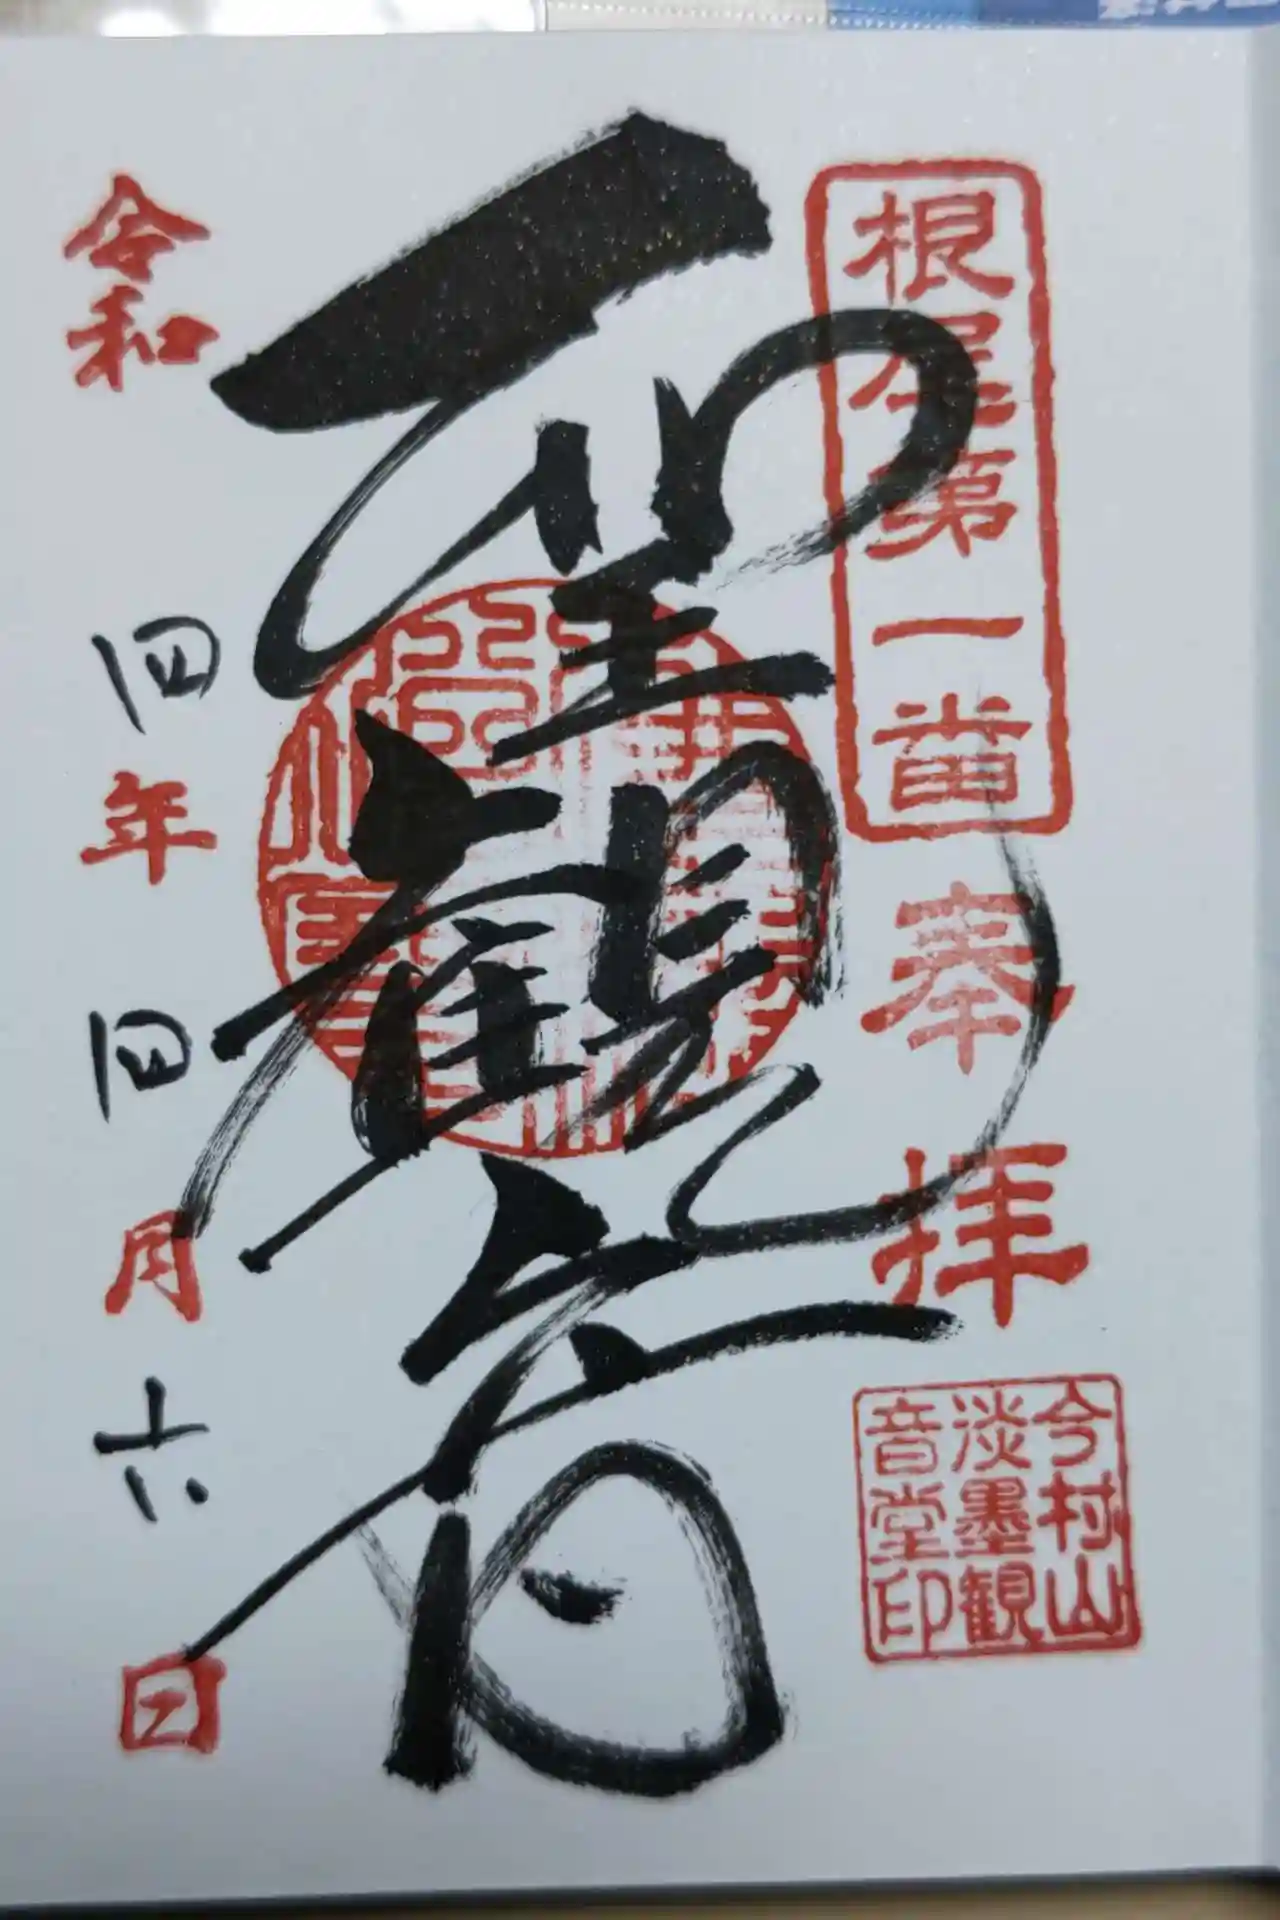 根尾第一番
奉拝
今村山
淡墨観
音堂印
聖観音
令和四年四月六日